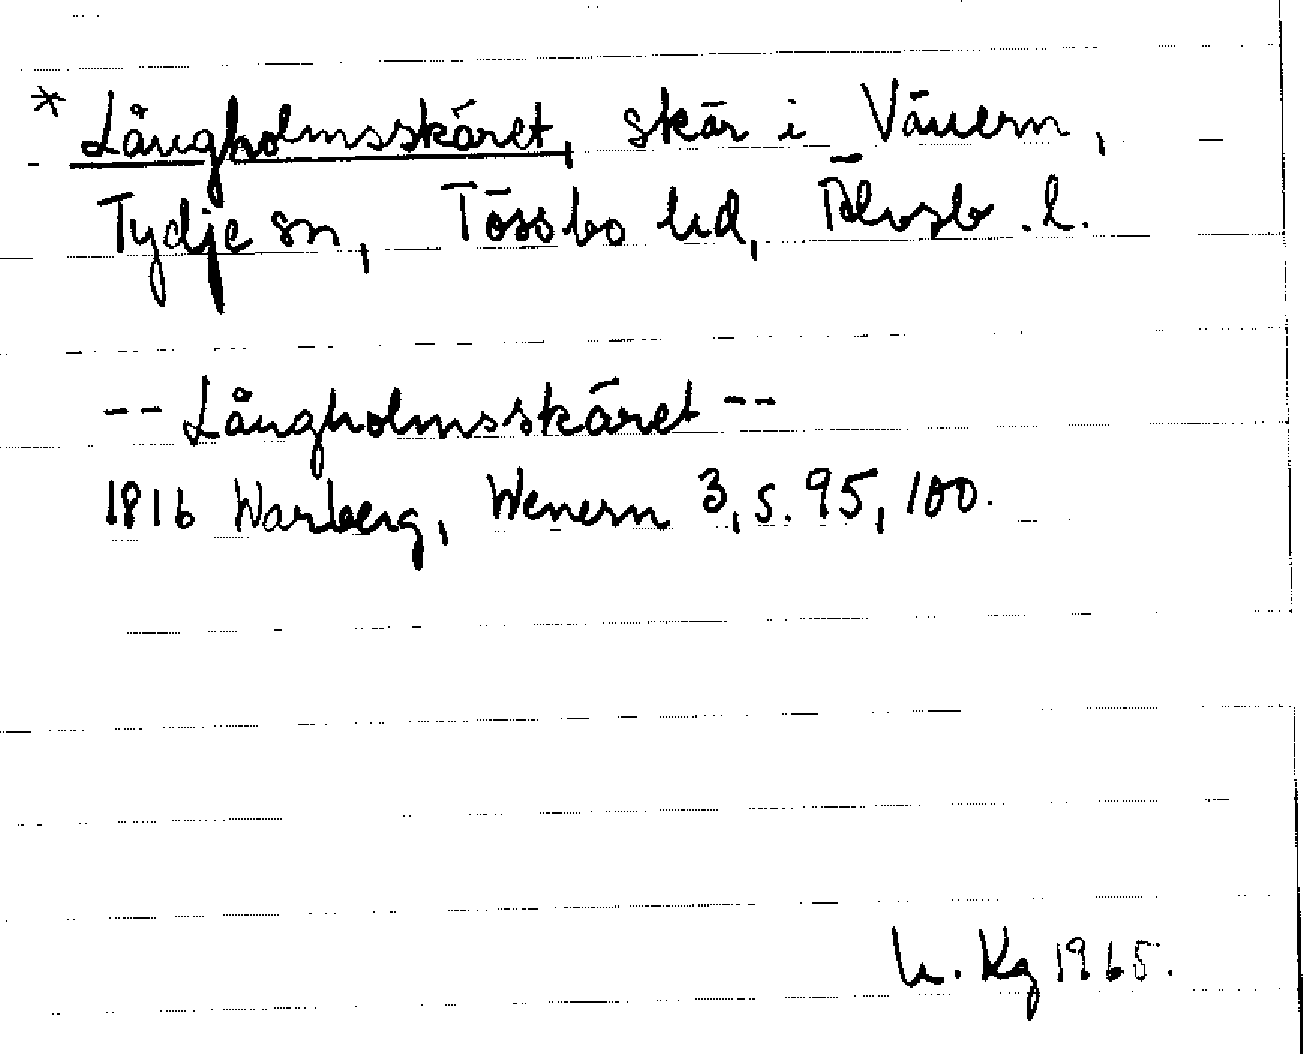 * Långholmsskäret, skär i Vänern,
Tydje sn, Tössbo hd, Älvsb. l.
-- Långholmsskäret --
1816 Warberg, Wenern 3, s. 95, 100.
Kg 1965.